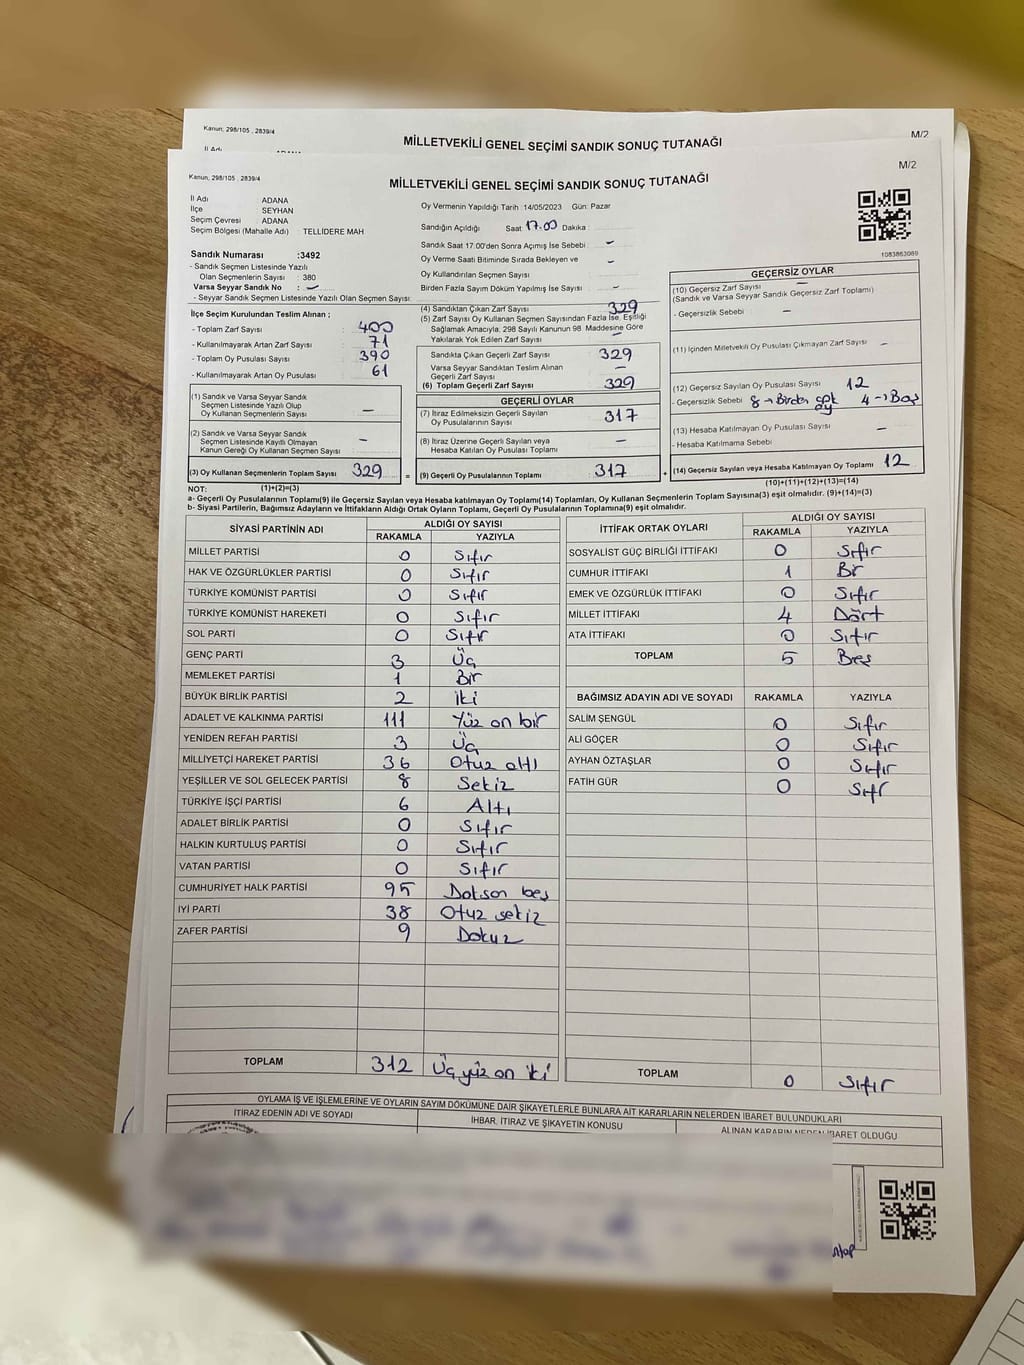 Kanun; 298/105 , 2839/4
MİLLETVEKİLİ GENEL SEÇİMİ SANDIK SONUÇ TUTANAĞI
M/2
İl Adı
Kanun; 298/105 , 2839/4
MİLLETVEKİLİ GENEL SEÇİMİ SANDIK SONUÇ TUTANAĞI
M/2
İl Adı ADANA
İlçe SEYHAN
Seçim Çevresi ADANA
Seçim Bölgesi (Mahalle Adı) : TELLİDERE MAH
Sandık Numarası :3492
- Sandık Seçmen Listesinde Yazılı
Olan Seçmenlerin Sayısı : 380
Varsa Seyyar Sandık No : -
- Seyyar Sandık Seçmen Listesinde Yazılı Olan Seçmen Sayısı:
İlçe Seçim Kurulundan Teslim Alınan ;
- Toplam Zarf Sayısı : 400
- Kullanılmayarak Artan Zarf Sayısı : 71
- Toplam Oy Pusulası Sayısı : 390
- Kullanılmayarak Artan Oy Pusulası : 61
(1) Sandık ve Varsa Seyyar Sandık
Seçmen Listesinde Yazılı Olup
Oy Kullanan Seçmenlerin Sayısı -
(2) Sandık ve Varsa Seyyar Sandık
Seçmen Listesinde Kayıtlı Olmayan
Kanun Gereği Oy Kullanan Seçmen Sayısı -
(3) Oy Kullanan Seçmenlerin Toplam Sayısı 329 =
(1)+(2)=(3)
Oy Vermenin Yapıldığı Tarih :14/05/2023 Gün: Pazar
Sandığın Açıldığı Saat 17.00 Dakika :
Sandık Saat 17.00'den Sonra Açımış İse Sebebi : -
Oy Verme Saati Bitiminde Sırada Bekleyen ve -
Oy Kullandırılan Seçmen Sayısı
Birden Fazla Sayım Döküm Yapılmış İse Sayısı : -
(4) Sandıktan Çıkan Zarf Sayısı 329
(5) Zarf Sayısı Oy Kullanan Seçmen Sayısından Fazla İse, Eşitliği
Sağlamak Amacıyla, 298 Sayılı Kanunun 98. Maddesine Göre
Yakılarak Yok Edilen Zarf Sayısı -
Sandıkta Çıkan Geçerli Zarf Sayısı 329
Varsa Seyyar Sandıktan Teslim Alınan
Geçerli Zarf Sayısı -
(6) Toplam Geçerli Zarf Sayısı 329
GEÇERLİ OYLAR
(7) İtiraz Edilmeksizin Geçerli Sayılan
Oy Pusulalarının Sayısı 317
(8) İtiraz Üzerine Geçerli Sayılan veya
Hesaba Katılan Oy Pusulası Toplamı -
(9) Geçerli Oy Pusulalarının Toplamı 317 +
1083863089
GEÇERSİZ OYLAR
(10) Geçersiz Zarf Sayısı -
(Sandık ve Varsa Seyyar Sandık Geçersiz Zarf Toplamı)
- Geçersizlik Sebebi : -
(11) İçinden Milletvekili Oy Pusulası Çıkmayan Zarf Sayısı -
(12) Geçersiz Sayılan Oy Pusulası Sayısı 12
- Geçersizlik Sebebi 8 → Birden çok oy 4 → Boş
(13) Hesaba Katılmayan Oy Pusulası Sayısı -
- Hesaba Katılmama Sebebi
(14) Geçersiz Sayılan veya Hesaba Katılmayan Oy Toplamı 12
(10)+(11)+(12)+(13)=(14)
NOT:
a- Geçerli Oy Pusulalarının Toplamı(9) ile Geçersiz Sayılan veya Hesaba katılmayan Oy Toplamı(14) Toplamları, Oy Kullanan Seçmenlerin Toplam Sayısına(3) eşit olmalıdır. (9)+(14)=(3)
b- Siyasi Partilerin, Bağımsız Adayların ve İttifakların Aldığı Ortak Oyların Toplamı, Geçerli Oy Pusulalarının Toplamına(9) eşit olmalıdır.
SİYASİ PARTİNİN ADI ALDIĞI OY SAYISI
RAKAMLA YAZIYLA
MİLLET PARTİSİ 0 Sıfır
HAK VE ÖZGÜRLÜKLER PARTİSİ 0 Sıfır
TÜRKİYE KOMÜNİST PARTİSİ 0 Sıfır
TÜRKİYE KOMÜNİST HAREKETİ 0 Sıfır
SOL PARTİ 0 Sıfır
GENÇ PARTİ 3 Üç
MEMLEKET PARTİSİ 1 Bir
BÜYÜK BİRLİK PARTİSİ 2 İki
ADALET VE KALKINMA PARTİSİ 111 Yüz on bir
YENİDEN REFAH PARTİSİ 3 Üç
MİLLİYETÇİ HAREKET PARTİSİ 36 Otuz altı
YEŞİLLER VE SOL GELECEK PARTİSİ 8 Sekiz
TÜRKİYE İŞÇİ PARTİSİ 6 Altı
ADALET BİRLİK PARTİSİ 0 Sıfır
HALKIN KURTULUŞ PARTİSİ 0 Sıfır
VATAN PARTİSİ 0 Sıfır
CUMHURİYET HALK PARTİSİ 95 Doksan beş
İYİ PARTİ 38 Otuz sekiz
ZAFER PARTİSİ 9 Dokuz
TOPLAM 312 Üç yüz on iki
İTTİFAK ORTAK OYLARI ALDIĞI OY SAYISI
RAKAMLA YAZIYLA
SOSYALİST GÜÇ BİRLİĞİ İTTİFAKI 0 Sıfır
CUMHUR İTTİFAKI 1 Bir
EMEK VE ÖZGÜRLÜK İTTİFAKI 0 Sıfır
MİLLET İTTİFAKI 4 Dört
ATA İTTİFAKI 0 Sıfır
TOPLAM 5 Beş
BAĞIMSIZ ADAYIN ADI VE SOYADI RAKAMLA YAZIYLA
SALİM ŞENGÜL 0 Sıfır
ALİ GÖÇER 0 Sıfır
AYHAN ÖZTAŞLAR 0 Sıfır
FATİH GÜR 0 Sıfr
TOPLAM 0 Sıfır
OYLAMA İŞ VE İŞLEMLERİNE VE OYLARIN SAYIM DÖKÜMÜNE DAİR ŞİKAYETLERLE BUNLARA AİT KARARLARIN NELERDEN İBARET BULUNDUKLARI
İTİRAZ EDENİN ADI VE SOYADI İHBAR, İTİRAZ VE ŞİKAYETİN KONUSU ALINAN KARARIN NEDEN İBARET OLDUĞU